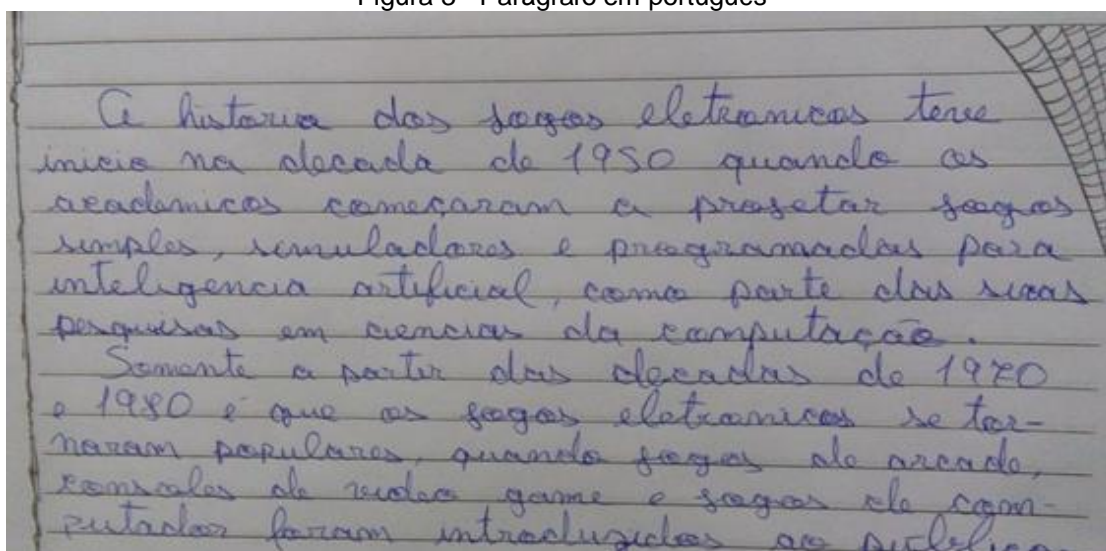 Figura 8 - Parágrafo em português
A historia dos jogos eletronicos teve
inicio na decada de 1950 quando os
academicos começaram a projetar jogos
simples, simuladores e programadas para
inteligencia artificial, como parte das suas
pesquisas em ciencias da computação.
Somente a partir das decadas de 1970
e 1980 é que os jogos eletronicos se tor-
naram populares, quando jogos de arcade,
consoles de video game e jogos de com-
putador foram introduzidos ao publico